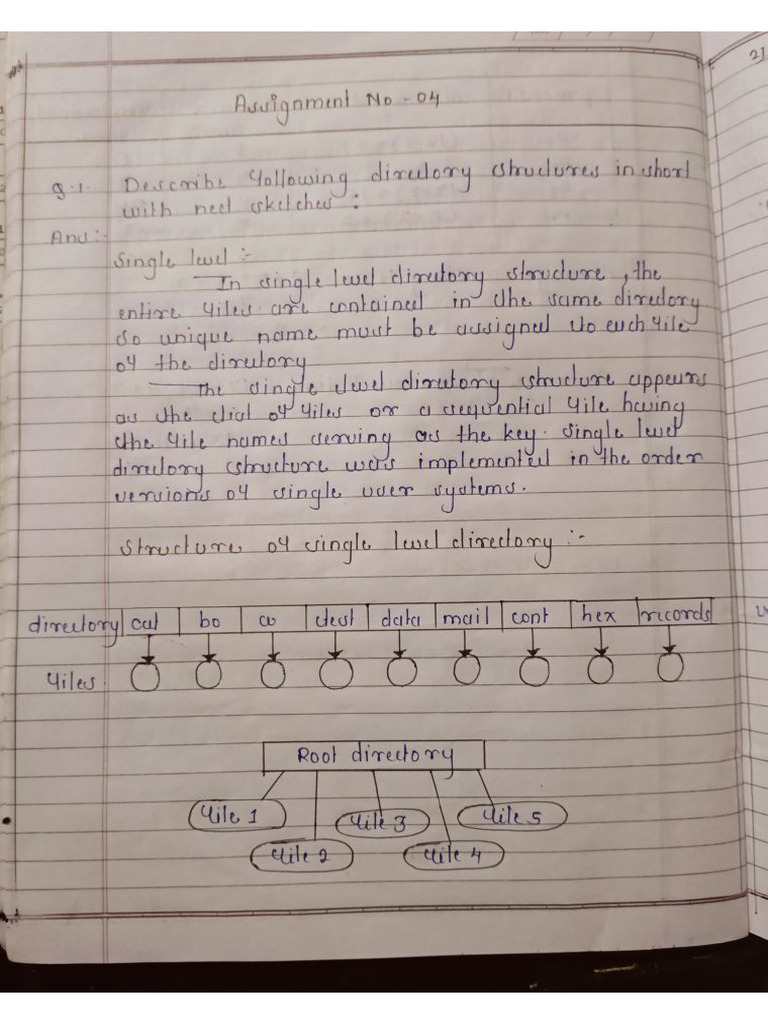 Assignment No - 04
Q.1. Describe following directory structures in short
with neet sketches :
Ans :-
Single level :-
In single level directory structure, the
entire files are contained in the same directory
so unique name must be assigned to each file
of the directory
The single level directory structure appears
as the list of files or a sequential file having
the file names serving as the key. Single level
directory structure was implemented in the order
versions of single user systems.
Structure of single level directory :-
directory cat bo a test data mail cont hex records
files
Root directory
file 1 file 3 file 5
file 2 file 4
21